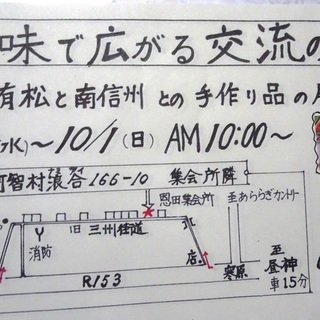 味で広がる交流の
有松と南信州との手作り品の
(水)〜10/1(日)AM10:00〜
智村浪合166-10 集会所隣
恩田集会所 至あららぎカントリー
旧三州街道
Y
消防
店
寒原
至
昼神
車15分
R153